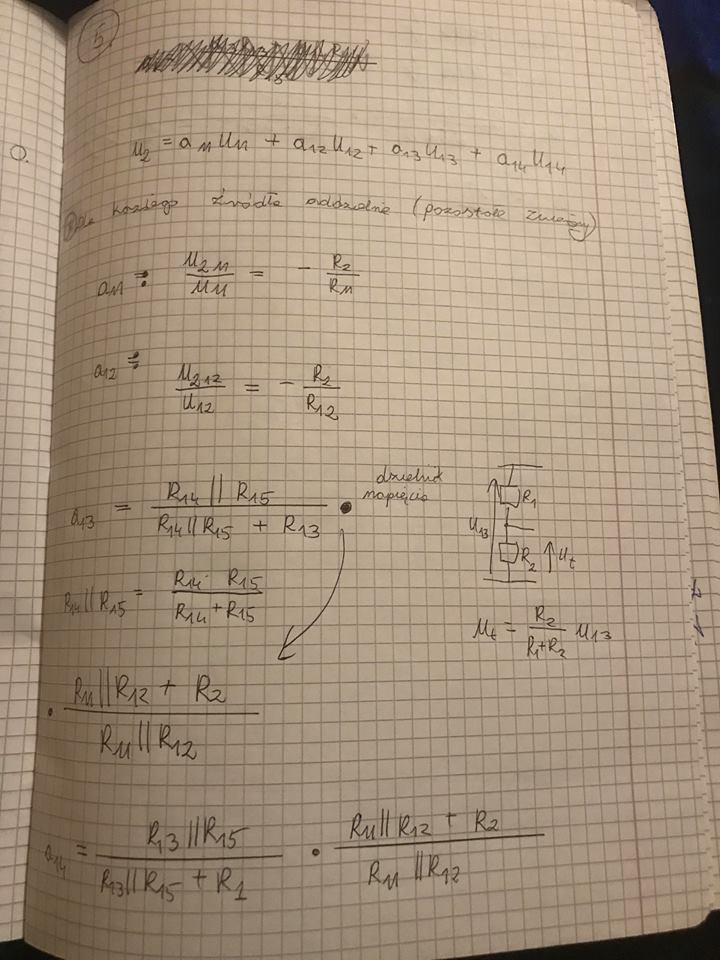 5
O.
u₂ = a₁₁u₁₁ + a₁₂u₁₂ + a₁₃u₁₃ + a₁₄u₁₄
dla każdego źródła oddzielnie (pozostałe zwieramy)
a₁₁ = u₂₁₁ / u₁₁ = - R₂ / R₁₁
a₁₂ = u₂₁₂ / u₁₂ = - R₂ / R₁₂
a₁₃ = (R₁₄ || R₁₅) / (R₁₄ || R₁₅ + R₁₃) •
dzielnik
napięcia
R₁
u₁₃
R₂
u_t
R₁₄ || R₁₅ = (R₁₄ · R₁₅) / (R₁₄ + R₁₅)
u_t = R₂ / (R₁+R₂) u₁₃
• (R₁₁ || R₁₂ + R₂) / (R₁₁ || R₁₂)
a₁₄ = (R₁₃ || R₁₅) / (R₁₃ || R₁₅ + R₁) • (R₁₁ || R₁₂ + R₂) / (R₁₁ || R₁₂)